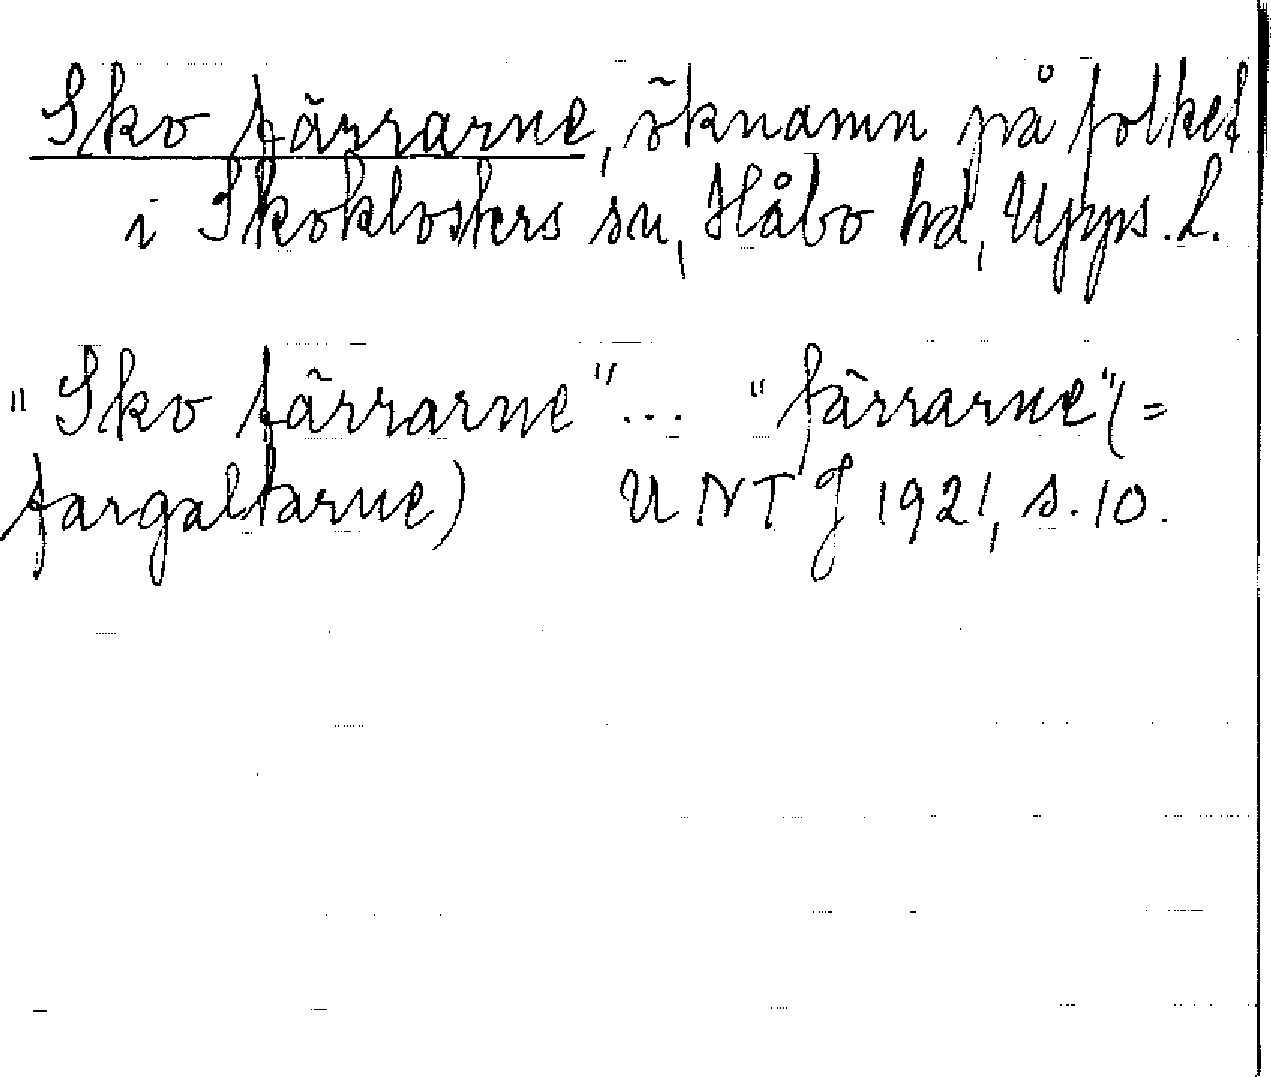 Sko färrarne, öknamn på folket
i Skoklosters sn, Håbo hd, Upps. l.
"Sko färrarne" ... "färrarne" (=
fargaltarne) UNT 1921, s. 10.